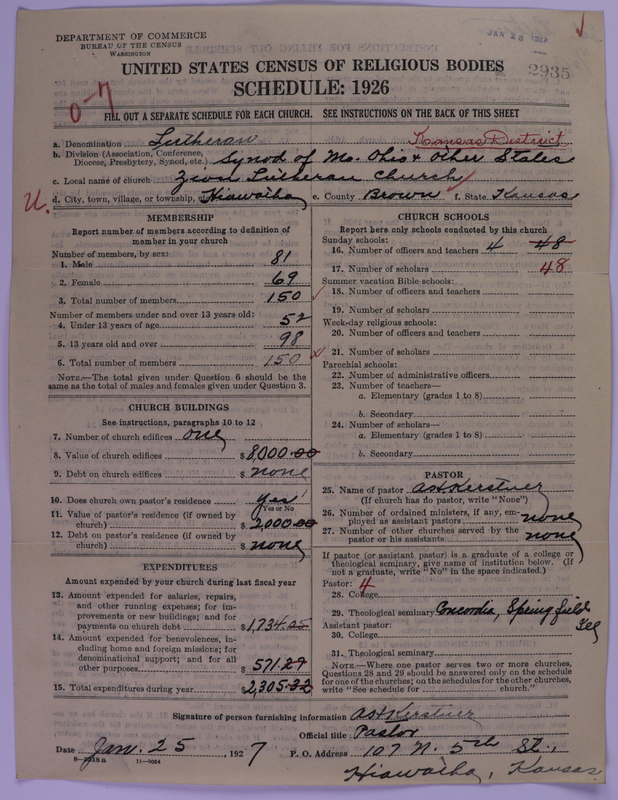 DEPARTMENT OF COMMERCE
BUREAU OF THE CENSUS
WASHINGTON
JAN 28 1927
2935
UNITED STATES CENSUS OF RELIGIOUS BODIES
SCHEDULE: 1926
0-7
FILL OUT A SEPARATE SCHEDULE FOR EACH CHURCH. SEE INSTRUCTIONS ON THE BACK OF THIS SHEET
a. Denomination Lutheran Kansas District
b. Division (Association, Conference, Diocese, Presbytery, Synod, etc.) Synod of Mo. Ohio & Other States
c. Local name of church Zion Lutheran Church
U. d. City, town, village, or township, etc. Hiawatha e. County Brown f. State Kansas
MEMBERSHIP
Report number of members according to definition of
member in your church
Number of members, by sex:
1. Male 81
2. Female 69
3. Total number of members 150
Number of members under and over 13 years old:
4. Under 13 years of age 52
5. 13 years old and over 98
6. Total number of members 150
NOTE.—The total given under Question 6 should be the
same as the total of males and females given under Question 3.
CHURCH BUILDINGS
See instructions, paragraphs 10 to 12
7. Number of church edifices one
8. Value of church edifices $ 8000.00
9. Debt on church edifices $ none
10. Does church own pastor's residence yes
Yes or No
11. Value of pastor's residence (if owned by
church) $ 2,000.00
12. Debt on pastor's residence (if owned by
church) $ none
EXPENDITURES
Amount expended by your church during last fiscal year
13. Amount expended for salaries, repairs,
and other running expenses; for im-
provements or new buildings; and for
payments on church debt $ 1,734.05
14. Amount expended for benevolences, in-
cluding home and foreign missions; for
denominational support; and for all
other purposes $ 571.27
15. Total expenditures during year $ 2,305.32
CHURCH SCHOOLS
Report here only schools conducted by this church
Sunday schools:
16. Number of officers and teachers 4 48
17. Number of scholars 48
Summer vacation Bible schools:
18. Number of officers and teachers
19. Number of scholars
Week-day religious schools:
20. Number of officers and teachers
21. Number of scholars
Parochial schools:
22. Number of administrative officers
23. Number of teachers—
a. Elementary (grades 1 to 8)
b. Secondary
24. Number of scholars—
a. Elementary (grades 1 to 8)
b. Secondary
PASTOR
25. Name of pastor Kerstner
(If church has no pastor, write "None")
26. Number of ordained ministers, if any, em-
ployed as assistant pastors none
27. Number of other churches served by the
pastor or his assistants none
If pastor (or assistant pastor) is a graduate of a college or
theological seminary, give name of institution below. (If
not a graduate, write "No" in the space indicated.)
Pastor: 4
28. College
29. Theological seminary Concordia, Springfield
Assistant pastor:
30. College
31. Theological seminary
NOTE.—Where one pastor serves two or more churches,
Questions 28 and 29 should be answered only on the schedule
for one of the churches; on the schedules for the other churches,
write "See schedule for church."
Signature of person furnishing information Kerstner
Official title Pastor
Date Jan. 25, 1927 P. O. Address 107 N. 5th St.,
11—9054
Hiawatha, Kansas.